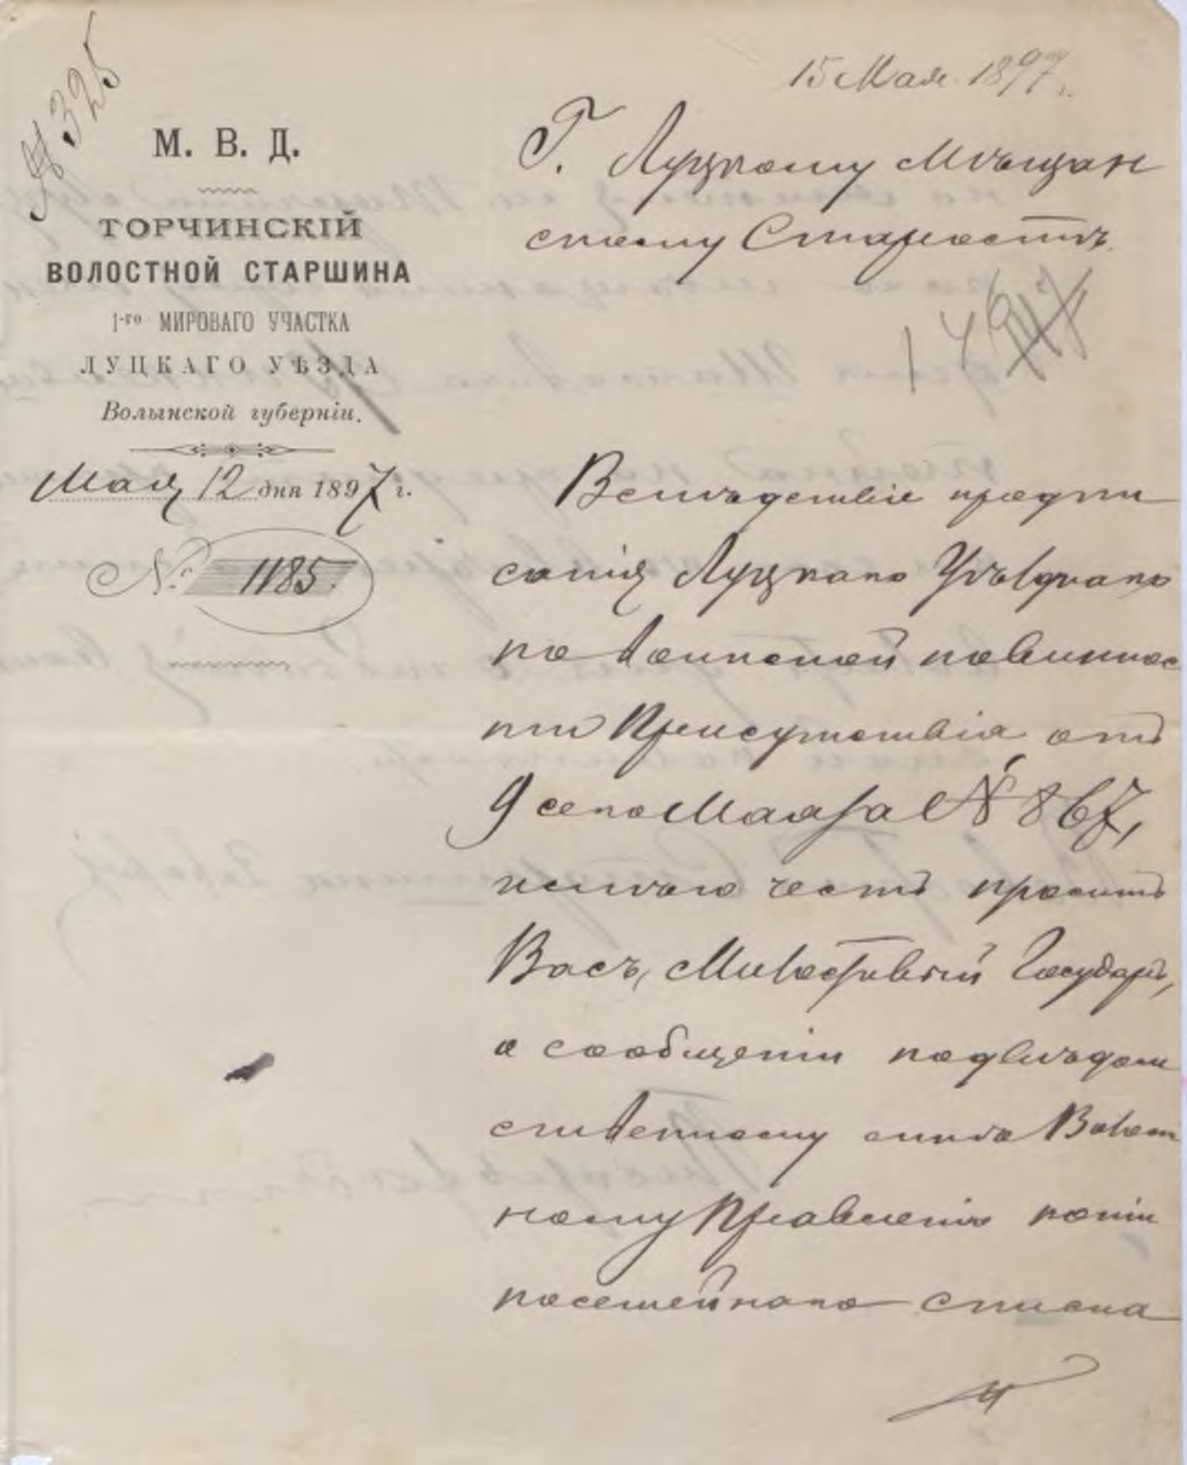 № 325
М. В. Д.
ТОРЧИНСКІЙ
ВОЛОСТНОЙ СТАРШИНА
1-го МИРОВАГО УЧАСТКА
ЛУЦКАГО УѢЗДА
Волынской губерніи.
Мая 12 дня 1897 г.
№ 1185.
15 Мая 1897 г.
Г. Луцкому Мѣщан
скому Старостѣ.
Вслѣдствіе предпи
санія Луцкаго Уѣзднаго
по воинской повиннос
ти Присутствія отъ
9 сего Мая за № 867,
имѣю честь просить
Васъ, Милостивый Государь,
о сообщеніи подвѣдом
ственному мнѣ Волост
ному Правленію копіи
посемейнаго списка